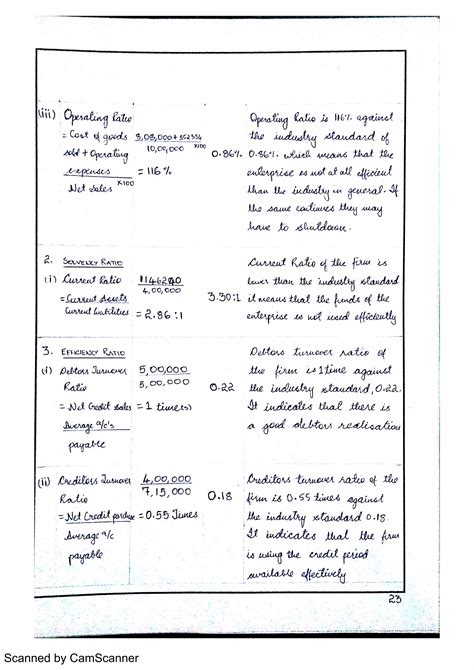 (iii) Operating Ratio
= Cost of goods 8,08,000+352354 x100
sold + Operating 10,00,000
expenses x100 = 116%
Net Sales
0.86%
Operating Ratio is 116% against
the industry standard of
0.86%. which means that the
enterprise is not at all efficient
than the industry in general. If
the same continues they may
have to shutdown.
2. SOLVENCY RATIO
(i) Current Ratio 1146240
= Current Assets 4,00,000
Current Liabilities = 2.86 : 1
3.30:1
Current Ratio of the firm is
lower than the industry standard
it means that the funds of the
enterprise is not used efficiently
3. EFFICIENCY RATIO
(i) Debtors Turnover 5,00,000
Ratio 5,00,000
= Net Credit Sales = 1 time(s)
Average a/c's
payable
0.22
Debtors turnover ratio of
the firm is 1 time against
the industry standard, 0.22.
It indicates that there is
a good debtors realisation
(ii) Creditors Turnover 4,00,000
Ratio 7,15,000
= Net Credit purchase = 0.55 Times
Average a/c
payable
0.18
Creditors turnover ratio of the
firm is 0.55 times against
the industry standard 0.18.
It indicates that the firm
is using the credit period
available effectively
23
Scanned by CamScanner